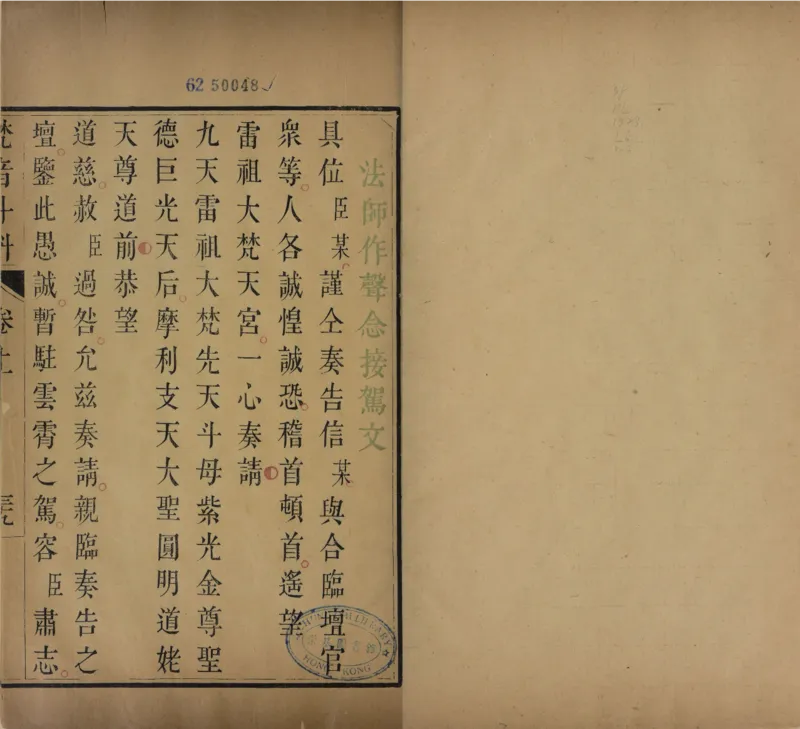 62 50048
法師作聲念接駕文
具位臣某謹仝奏告信某與合臨壇官
衆等人各誠惶誠恐稽首頓首遙望
雷祖大梵天宮一心奏請
九天雷祖大梵先天斗母紫光金尊聖
德巨光天后摩利支天大聖圓明道姥
天尊道前恭望
道慈赦臣過咎允茲奏請親臨奏告之
壇鑒此愚誠暫駐雲霄之駕容臣肅志
梵音斗科 卷上
LIBRARY
HONG KONG